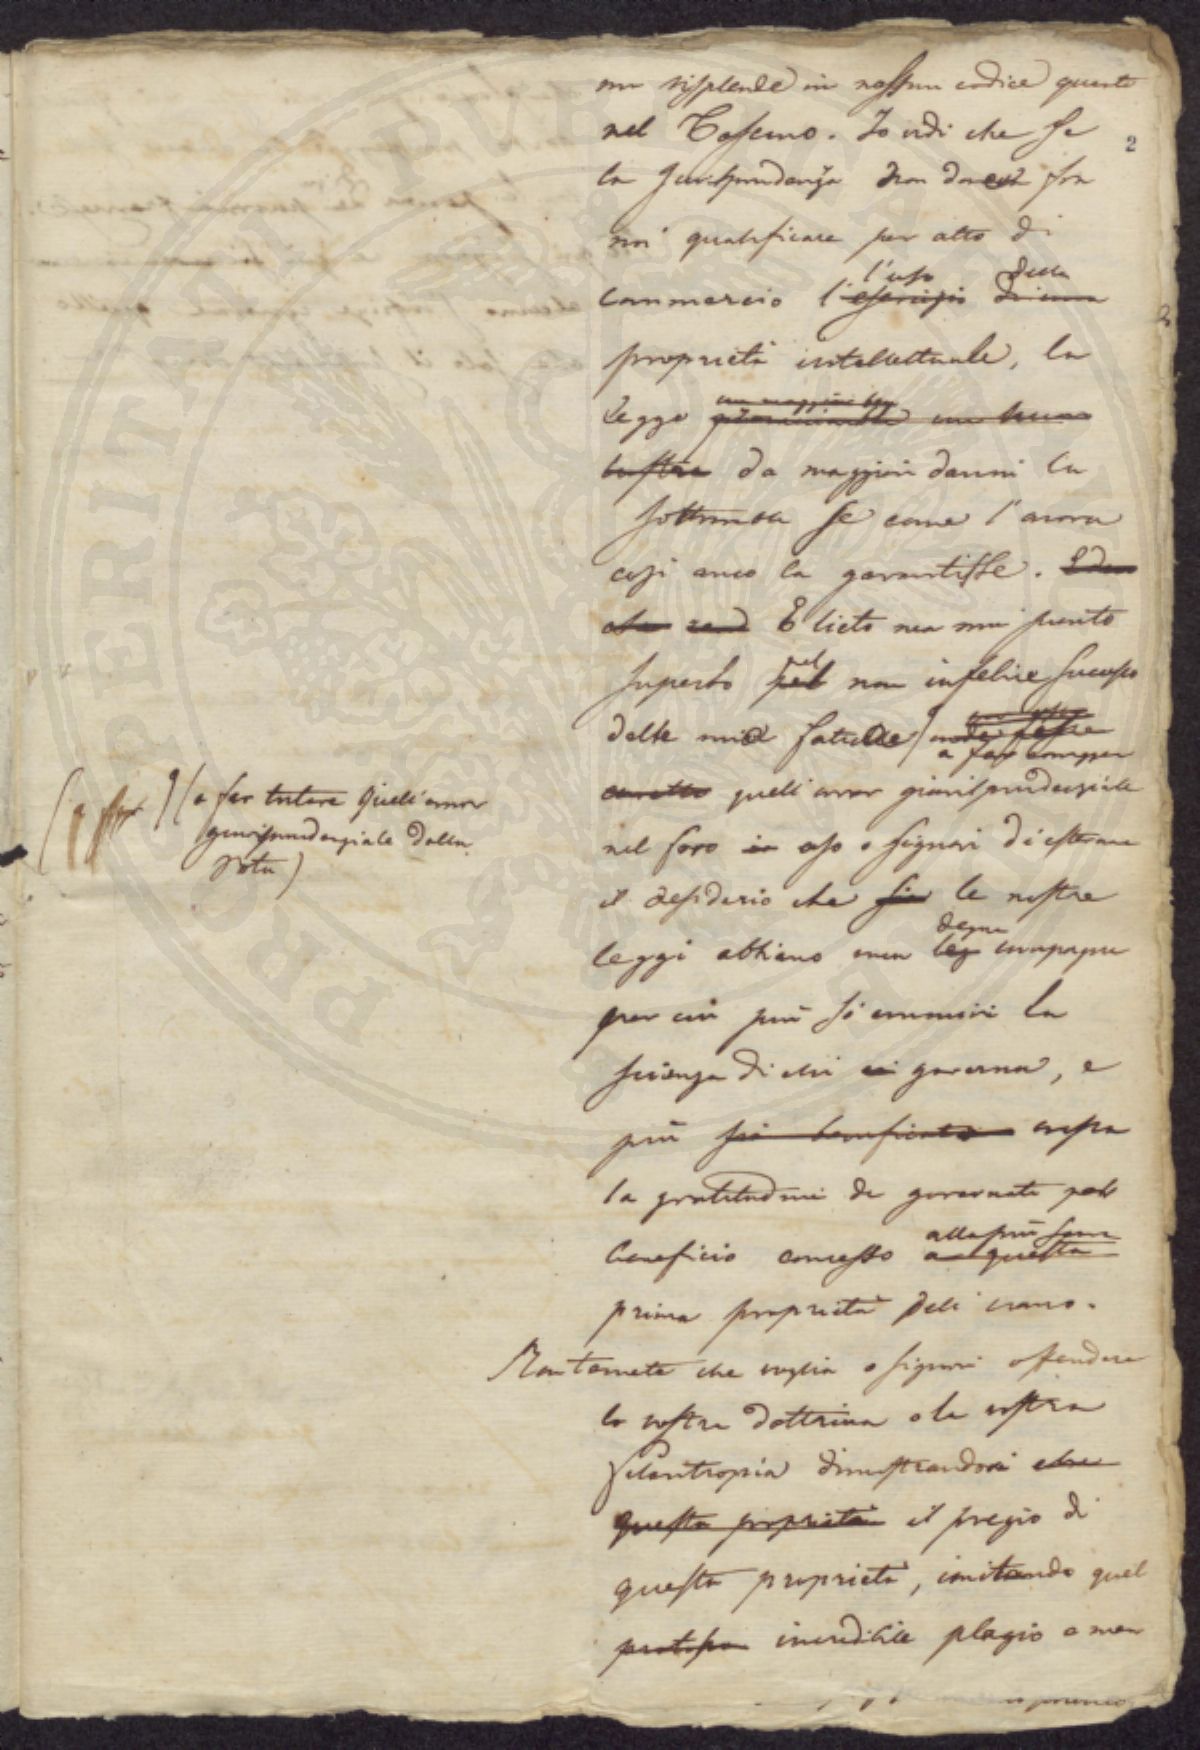 non risplende in nessun codice quanto
nel Toscano. Io vidi che se
2
la Giurisprudenza non dovea fra
noi qualificare per atto di
l'uso della
commercio l'esercizio di una
proprietà intellettuale, la
legge
da maggiori danni la
se come l'onora
così anco la garantisse.
E lieto ma non punto
nel
superbo pel non infelice successo
delle mie fatiche
a far
quell'error giurisprudenziale
(a far tutare quell'error
giurisprudenziale dalla
Rota)
nel foro io oso o signori di esternare
il desiderio che sia le nostre
degna
leggi abbiano una leg compagna
per cui più si ammiri la
scienza di chi ci governa, e
più sia beneficato cresca
la gratitudine de governati pel
alla più
beneficio concesso a questa
prima proprietà dell'uomo.
Non temete che voglia o signori offendere
la vostra dottrina o la vostra
filantropia dimostrandovi che
questa proprietà il pregio di
questa proprietà, imitando quel
incredibile plagio a